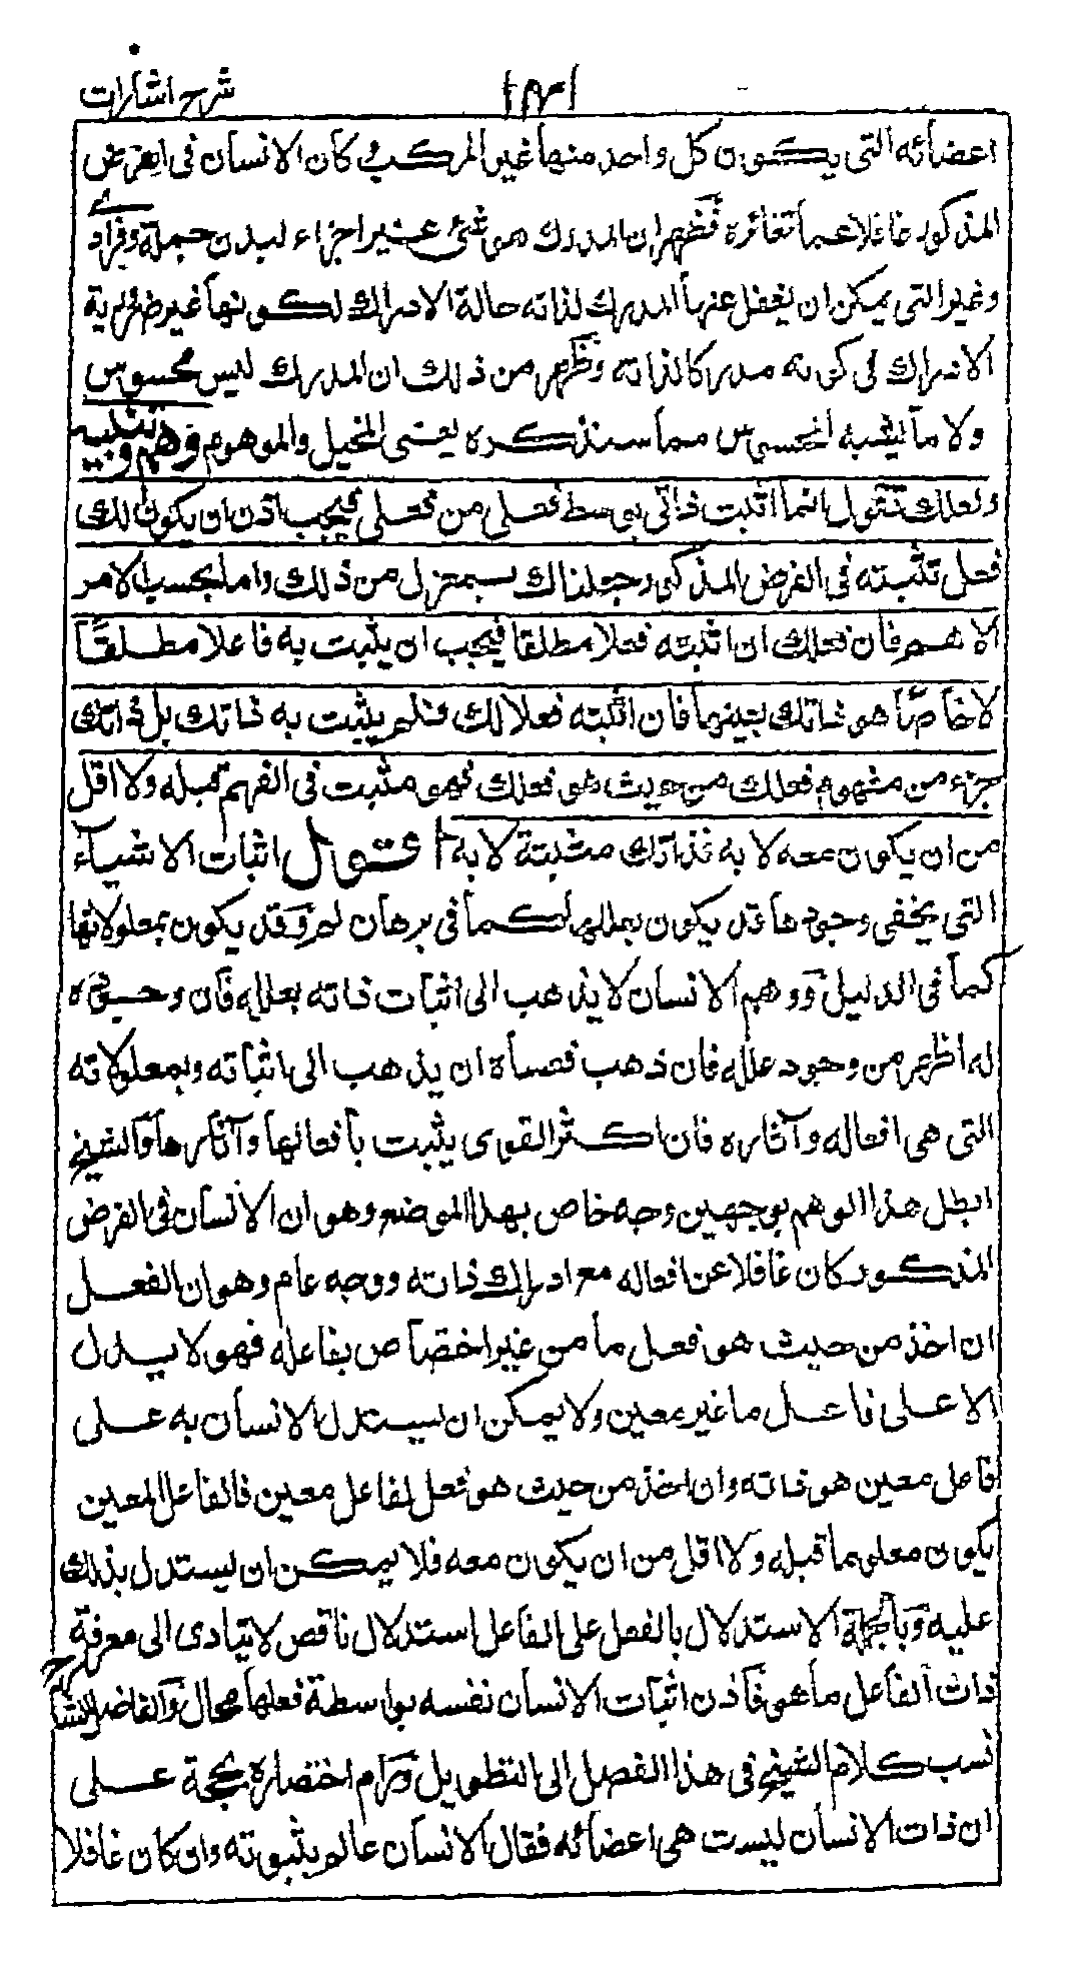 شرح اشارات
اعضائه التى يكون كل واحد منها غير المركب و كان الانسان فى الفرض
المذكور غافلا عما تغائره فظهر ان المدرك هو شئ غير اجزاء لبدن جملة وفرادے
وغير التى يمكن ان يغفل عنها المدرك لذاته حالة الادراك لكونها غير ضرورية
الادراك فى كونه مدركا لذاته وظهر من ذلك ان المدرك ليس محسوس
ولا ما يشبه المحسوس مما سنذكره يعنى المخيل والموهوم وهم وتنبيه
ولعلك تقول انما اثبت ذاتى بوسط فعلى من فعلى فيجب اذن ان يكون لك
فعل تثبته فى الفرض المذكور وجعلناك بمعزل من ذلك واما بحسب الامر
الاهم فان فعلك ان اثبته فعلا مطلقا فيجب ان يثبت به فاعلا مطلقا
لا خاصا هو ذاتك بعينها فان اثبته فعلا لك فلم يثبت به ذاتك بل ذاتك
جزء من مفهوم فعلك من حيث هو فعلك فهو مثبت فى الفهم قبله ولا اقل
من ان يكون معه لا به فذاتك مثبتة لا به اقول اثبات الاشياء
التى يخفى وجودها قد يكون بعللها كما فى برهان لم وقد يكون بمعلولاتها
كما فى الدليل ووهم الانسان لا يذهب الى اثبات ذاته بعلله فان وجوده
له اظهر من وجود علله فان ذهب فعساه ان يذهب الى اثباته بمعلولاته
التى هى افعاله وآثاره فان اكثر القوى يثبت بافعالها وآثارها والشيخ
ابطل هذا الوهم بوجهين وجه خاص بهذا الموضع وهو ان الانسان فى الفرض
المذكور كان غافلا عن افعاله مع ادراك ذاته ووجه عام وهو ان الفعل
ان اخذ من حيث هو فعل ما من غير اختصاص بفاعله فهو لا يدل
الا على فاعل ما غير معين ولا يمكن ان يستدل الانسان به على
فاعل معين هو ذاته وان اخذ من حيث هو فعل لفاعل معين فالفاعل المعين
يكون معلوما قبله ولا اقل من ان يكون معه فلا يمكن ان يستدل بذلك
عليه وبالجملة الاستدلال بالفعل على الفاعل استدلال ناقص لا يتادى الى معرفة
ذات الفاعل ما هو فاذن اثبات الانسان نفسه بواسطة فعلها محال والفاضل الشارح
نسب كلام الشيخ فى هذا الفصل الى التطويل ورام اختصاره بحجة على
ان ذات الانسان ليست هى اعضائه فقال الانسان عالم بثبوته وان كان غافلا